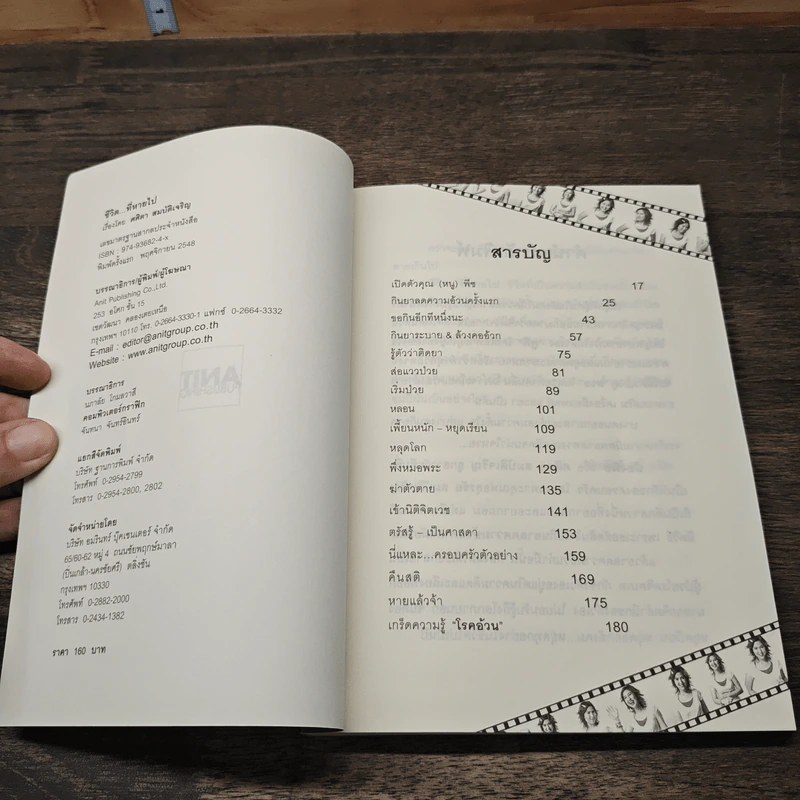 ชีวิต...ที่หายไป
เรื่องโดย ศศิลา สมบัติเจริญ
เลขมาตรฐานสากลประจำหนังสือ
ISBN : 974-93682-4-x
พิมพ์ครั้งแรก พฤศจิกายน 2548
บรรณาธิการ/ผู้พิมพ์/ผู้โฆษณา
Anit Publishing Co.,Ltd.
253 อโศก ชั้น 15
เขตวัฒนา คลองเตยเหนือ
กรุงเทพฯ 10110 โทร. 0-2664-3330-1 แฟกซ์ 0-2664-3332
E-mail : editor@anitgroup.co.th
Website : www.anitgroup.co.th
บรรณาธิการ
นภาลัย โกมลวาสี
คอมพิวเตอร์กราฟิก
จันทนา จันทร์อินทร์
แยกสีจัดพิมพ์
บริษัท ฐานการพิมพ์ จำกัด
โทรศัพท์ 0-2954-2799
โทรสาร 0-2954-2800, 2802
จัดจำหน่ายโดย
บริษัท อมรินทร์ บุ๊คเซนเตอร์ จำกัด
65/60-62 หมู่ 4 ถนนชัยพฤกษ์มาลา
(ปิ่นเกล้า-นครชัยศรี) ตลิ่งชัน
กรุงเทพฯ 10330
โทรศัพท์ 0-2882-2000
โทรสาร 0-2434-1382
ราคา 160 บาท
สารบัญ
เปิดตัวคุณ (หนู) พีช 17
กินยาลดความอ้วนครั้งแรก 25
ขอกินอีกทีหนึ่งนะ 43
กินยาระบาย & ล้วงคออ้วก 57
รู้ตัวว่าติดยา 75
ส่อแววป่วย 81
เริ่มป่วย 89
หลอน 101
เพี้ยนหนัก – หยุดเรียน 109
หลุดโลก 119
พึ่งหมอพระ 129
ฆ่าตัวตาย 135
เข้านิติจิตเวช 141
ตรัสรู้ – เป็นศาสดา 153
นี่แหละ...ครอบครัวตัวอย่าง 159
คืนสติ 169
หายแล้วจ้า 175
เกร็ดความรู้ "โรคอ้วน" 180